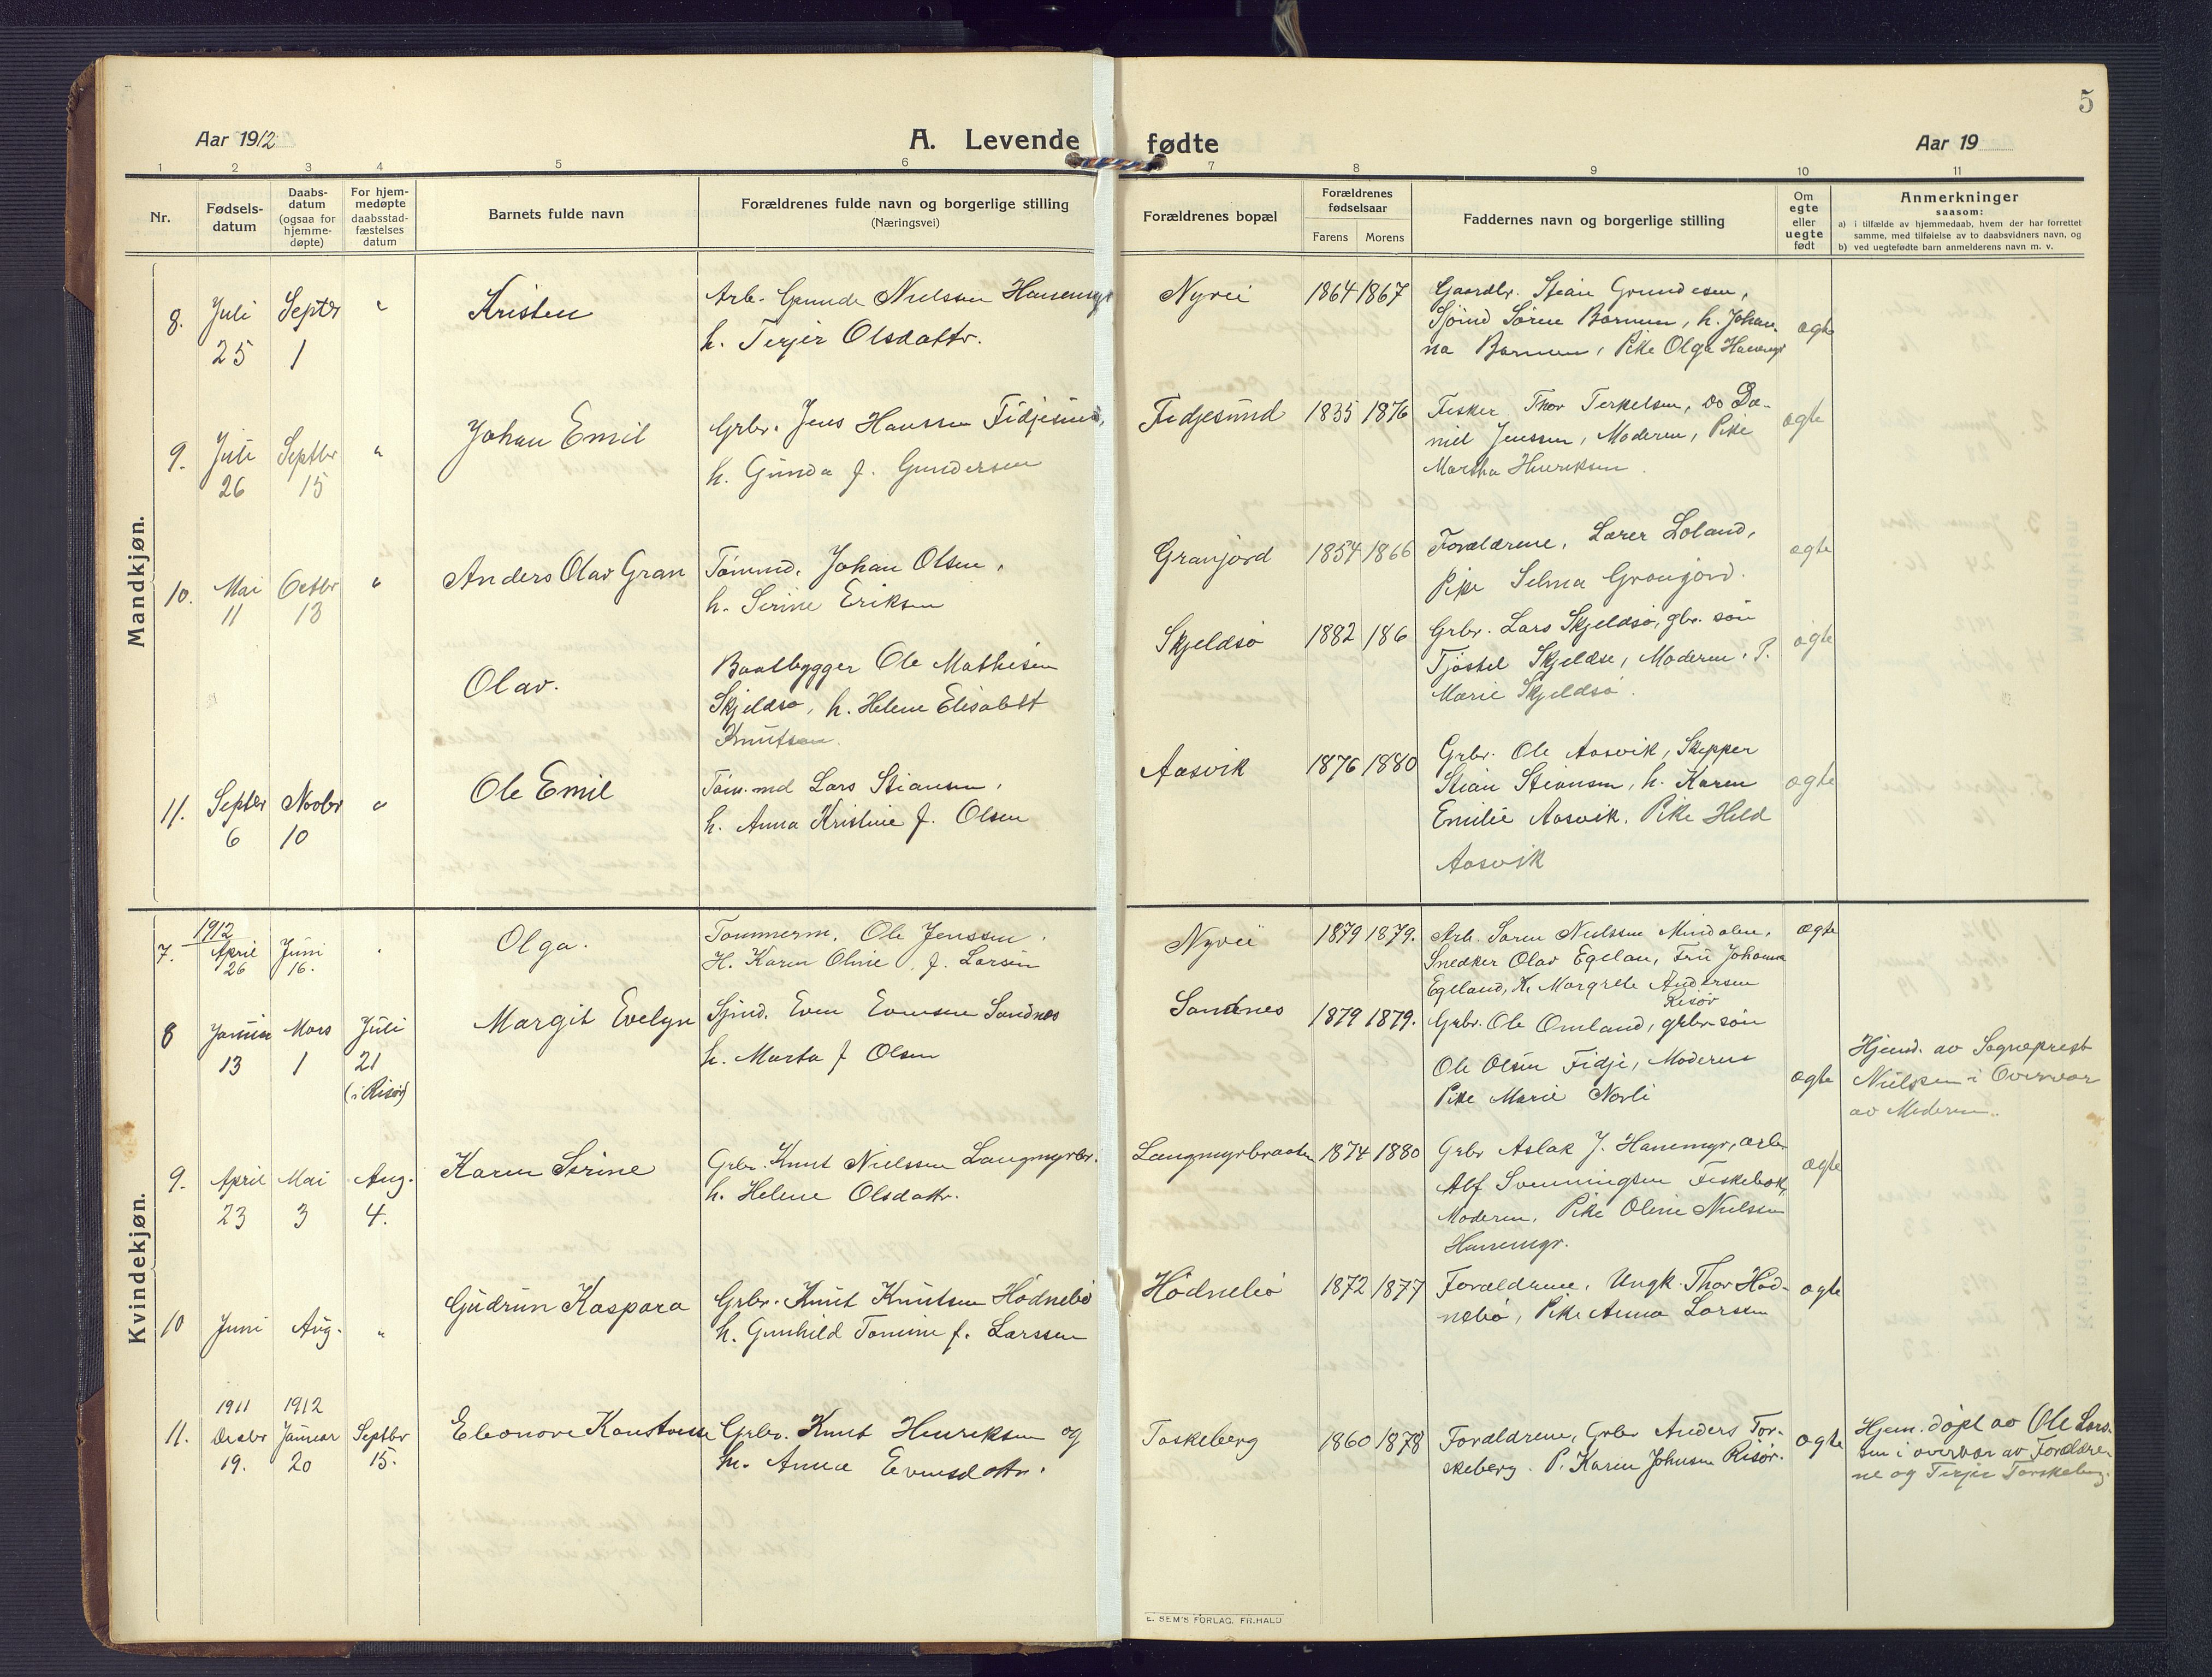 5
Aar 1912
A. Levende fødte
Aar 19
1 2 3 4 5 6 7 8 9 10 11
Nr.
Fødselsdatum
Daabsdatum (ogsaa for hjemmedøpte)
For hjemmedøpte daabsstadfæstelses datum
Barnets fulde navn
Forældrenes fulde navn og borgerlige stilling
(Næringsvei)
Forældrenes bopæl
Forældrenes fødselsaar
Farens Morens
Faddernes navn og borgerlige stilling
Om egte eller uegte født
Anmerkninger
saasom:
a) i tilfælde av hjemmedaab, hvem der har forrettet
samme, med tilføielse av to daabsvidners navn, og
b) ved uegtefødte barn anmelderens navn m. v.
Mandkjøn.
8. Juli 25 Septr 1 "
Kristen
Arb. Gunde Nielsen Hanemyr
h. Terjer Olsdattr.
Nyvei 1864 1867
Gaardbr. Stian Grundesen,
Sjömd Sören Barmen, h. Johan-
na Barmen, Pike Olga Hanemyr
ægte
9. Juli 26 Septbr 15 "
Johan Emil
Grbr. Jens Hanssen Fidjesund,
h. Gunda f. Gundersen
Fidjesund 1835 1876
Fisker Thor Terkelsen, Do Da-
niel Jenssen, Moderen, Pike
Martha Henriksen.
ægte
10. Mai 11 Octbr 13 "
Anders Olav Gran
Tömmd. Johan Olsen,
h. Serine Eriksen
Granjord 1854 1866
Forældrene, Lærer Loland,
Pike Selma Granjord.
ægte
Olav.
Baatbygger Ole Mathisen
Skjeldsö, h. Helene Elisabet
Knutsen.
Skjeldsö 1882 186
Grbr. Lars Skjeldsö, gbr. sön
Tjöstel Skjeldsö, Moderen. P.
Marie Skjeldsö.
ægte
11. Septbr 6 Novbr 10 "
Ole Emil
Töm.md Lars Stiansen,
h. Anna Kristine f. Olsen
Aasvik 1876 1880
Grbr. Ole Aasvik, Skipper
Stian Stiansen, h. Karen
Emilie Aasvik. Pike Hild
Aasvik
ægte
Kvindekjøn.
7. 1912 April 26 Juni 16.
Olga.
Tommerm. Ole Jenssen.
H. Karen Oline f. Larsen
Nyvei 1879 1879.
Arb. Soren Nielssen Mindalen,
Snedker Olav Egelan, Fru Johanna
Egeland, K. Margrete Andersen
Risör
ægte
8 Januar 13 Mars 1 Juli 21 (i Risör)
Margit Evelyn
Sjmd. Even Evensen Sandnes
h. Marta f Olsen
Sandnes 1879 1879.
Grbr. Ole Omland, grbr. sön
Ole Olsen Fidje, Moderen
Pike Marie Norli
ægte
Hjemd. av Sogneprest
Nielssen i Overvær
av Moderen.
9. April 23 Mai 3 Aug. 4.
Karen Serine
Grbr. Knut Nielssen Langmyrbr.
h. Helene Olsdattr.
Langmyrbraaten 1874 1880
Grbr Aslak J. Hanemyr, arb
Alf Svenningsen Fiskebæk,
Moderen, Pike Oline Nielsen
Hanemyr.
ægte
10 Juni Aug. "
Gudrun Kaspara
Grbr. Knut Knutsen Hödnebö
h. Gunhild Tomine f. Larssen
Hödnebö 1872 1877
Forældrene, Ungk. Thor Höd-
nebö, Pike Anna Larssen
ægte
11. 1911 Decbr 19. 1912 Januar 20 Septbr 15.
Eleonore Konstanse
Grbr. Knut Henriksen og
h. Anna Evensdattr.
Toskeberg 1860 1878
Forældrene, Grbr Anders Tor-
skeberg. P. Karen Johnsen Risör.
ægte
Hjem. döpt av Ole Lars-
sen i overvær av Forældre-
ne og Terjer Torskeberg.
E. SEM'S FORLAG, FR.HALD